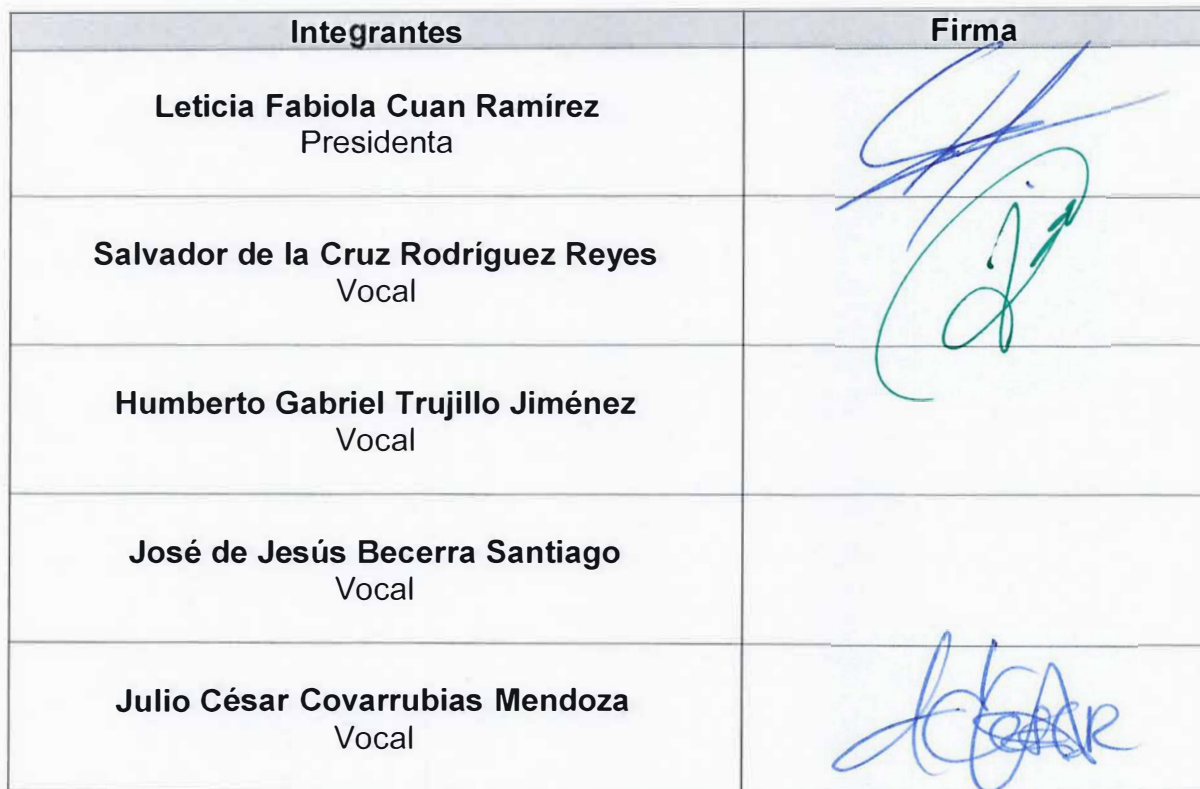 Integrantes Firma
Leticia Fabiola Cuan Ramírez
Presidenta
Salvador de la Cruz Rodríguez Reyes
Vocal
Humberto Gabriel Trujillo Jiménez
Vocal
José de Jesús Becerra Santiago
Vocal
Julio César Covarrubias Mendoza
Vocal